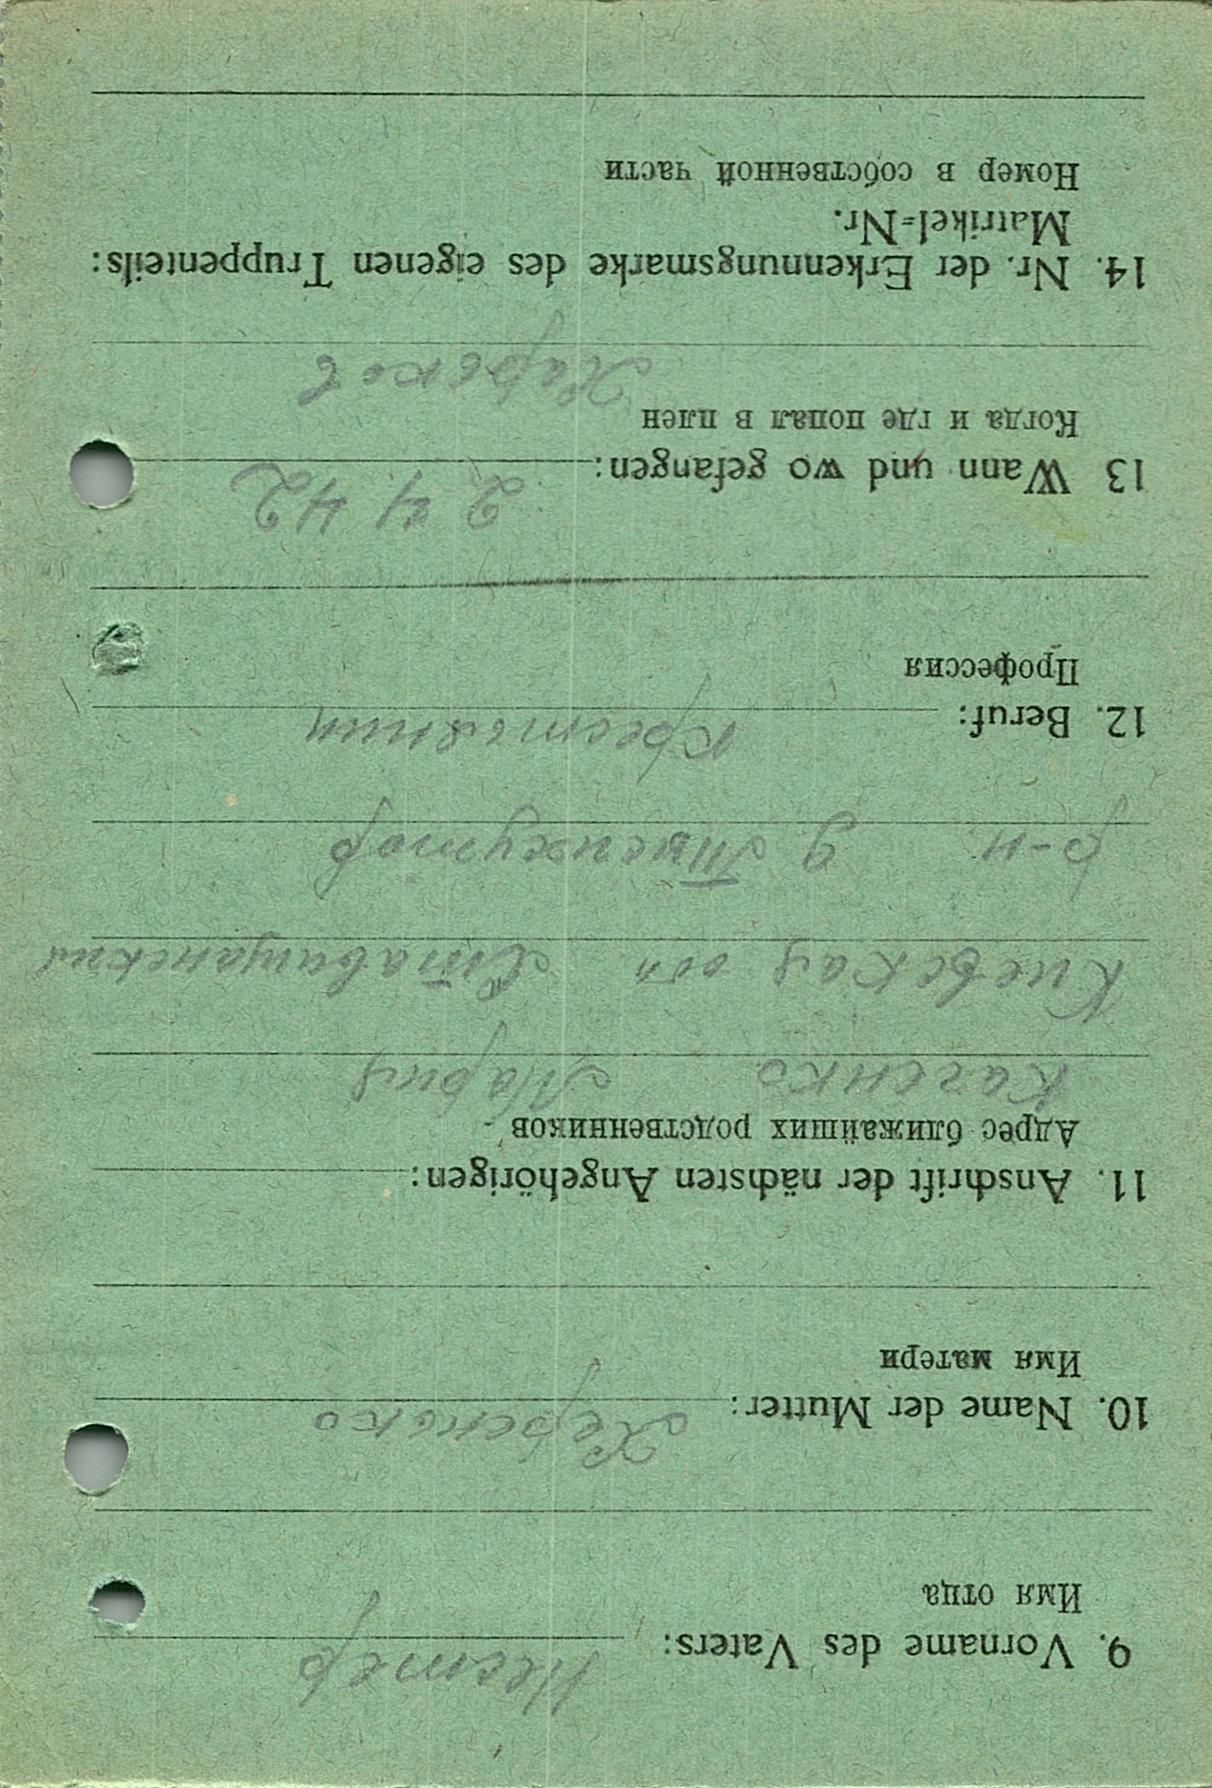 9. Vorname des Vaters: Нестер
Имя отца
10. Name der Mutter:
Имя матери
11. Anschrift der nächsten Angehörigen:
Адрес ближайших родственников
Каченко Мария
Киевская обл Ставищанский
р-н д
12. Beruf: крестьянин
Профессия
13 Wann und wo gefangen: 2 4 42
Когда и где попал в плен
Харьков
14. Nr. der Erkennungsmarke des eigenen Truppenteils:
Matrikel=Nr.
Номер в собственной части